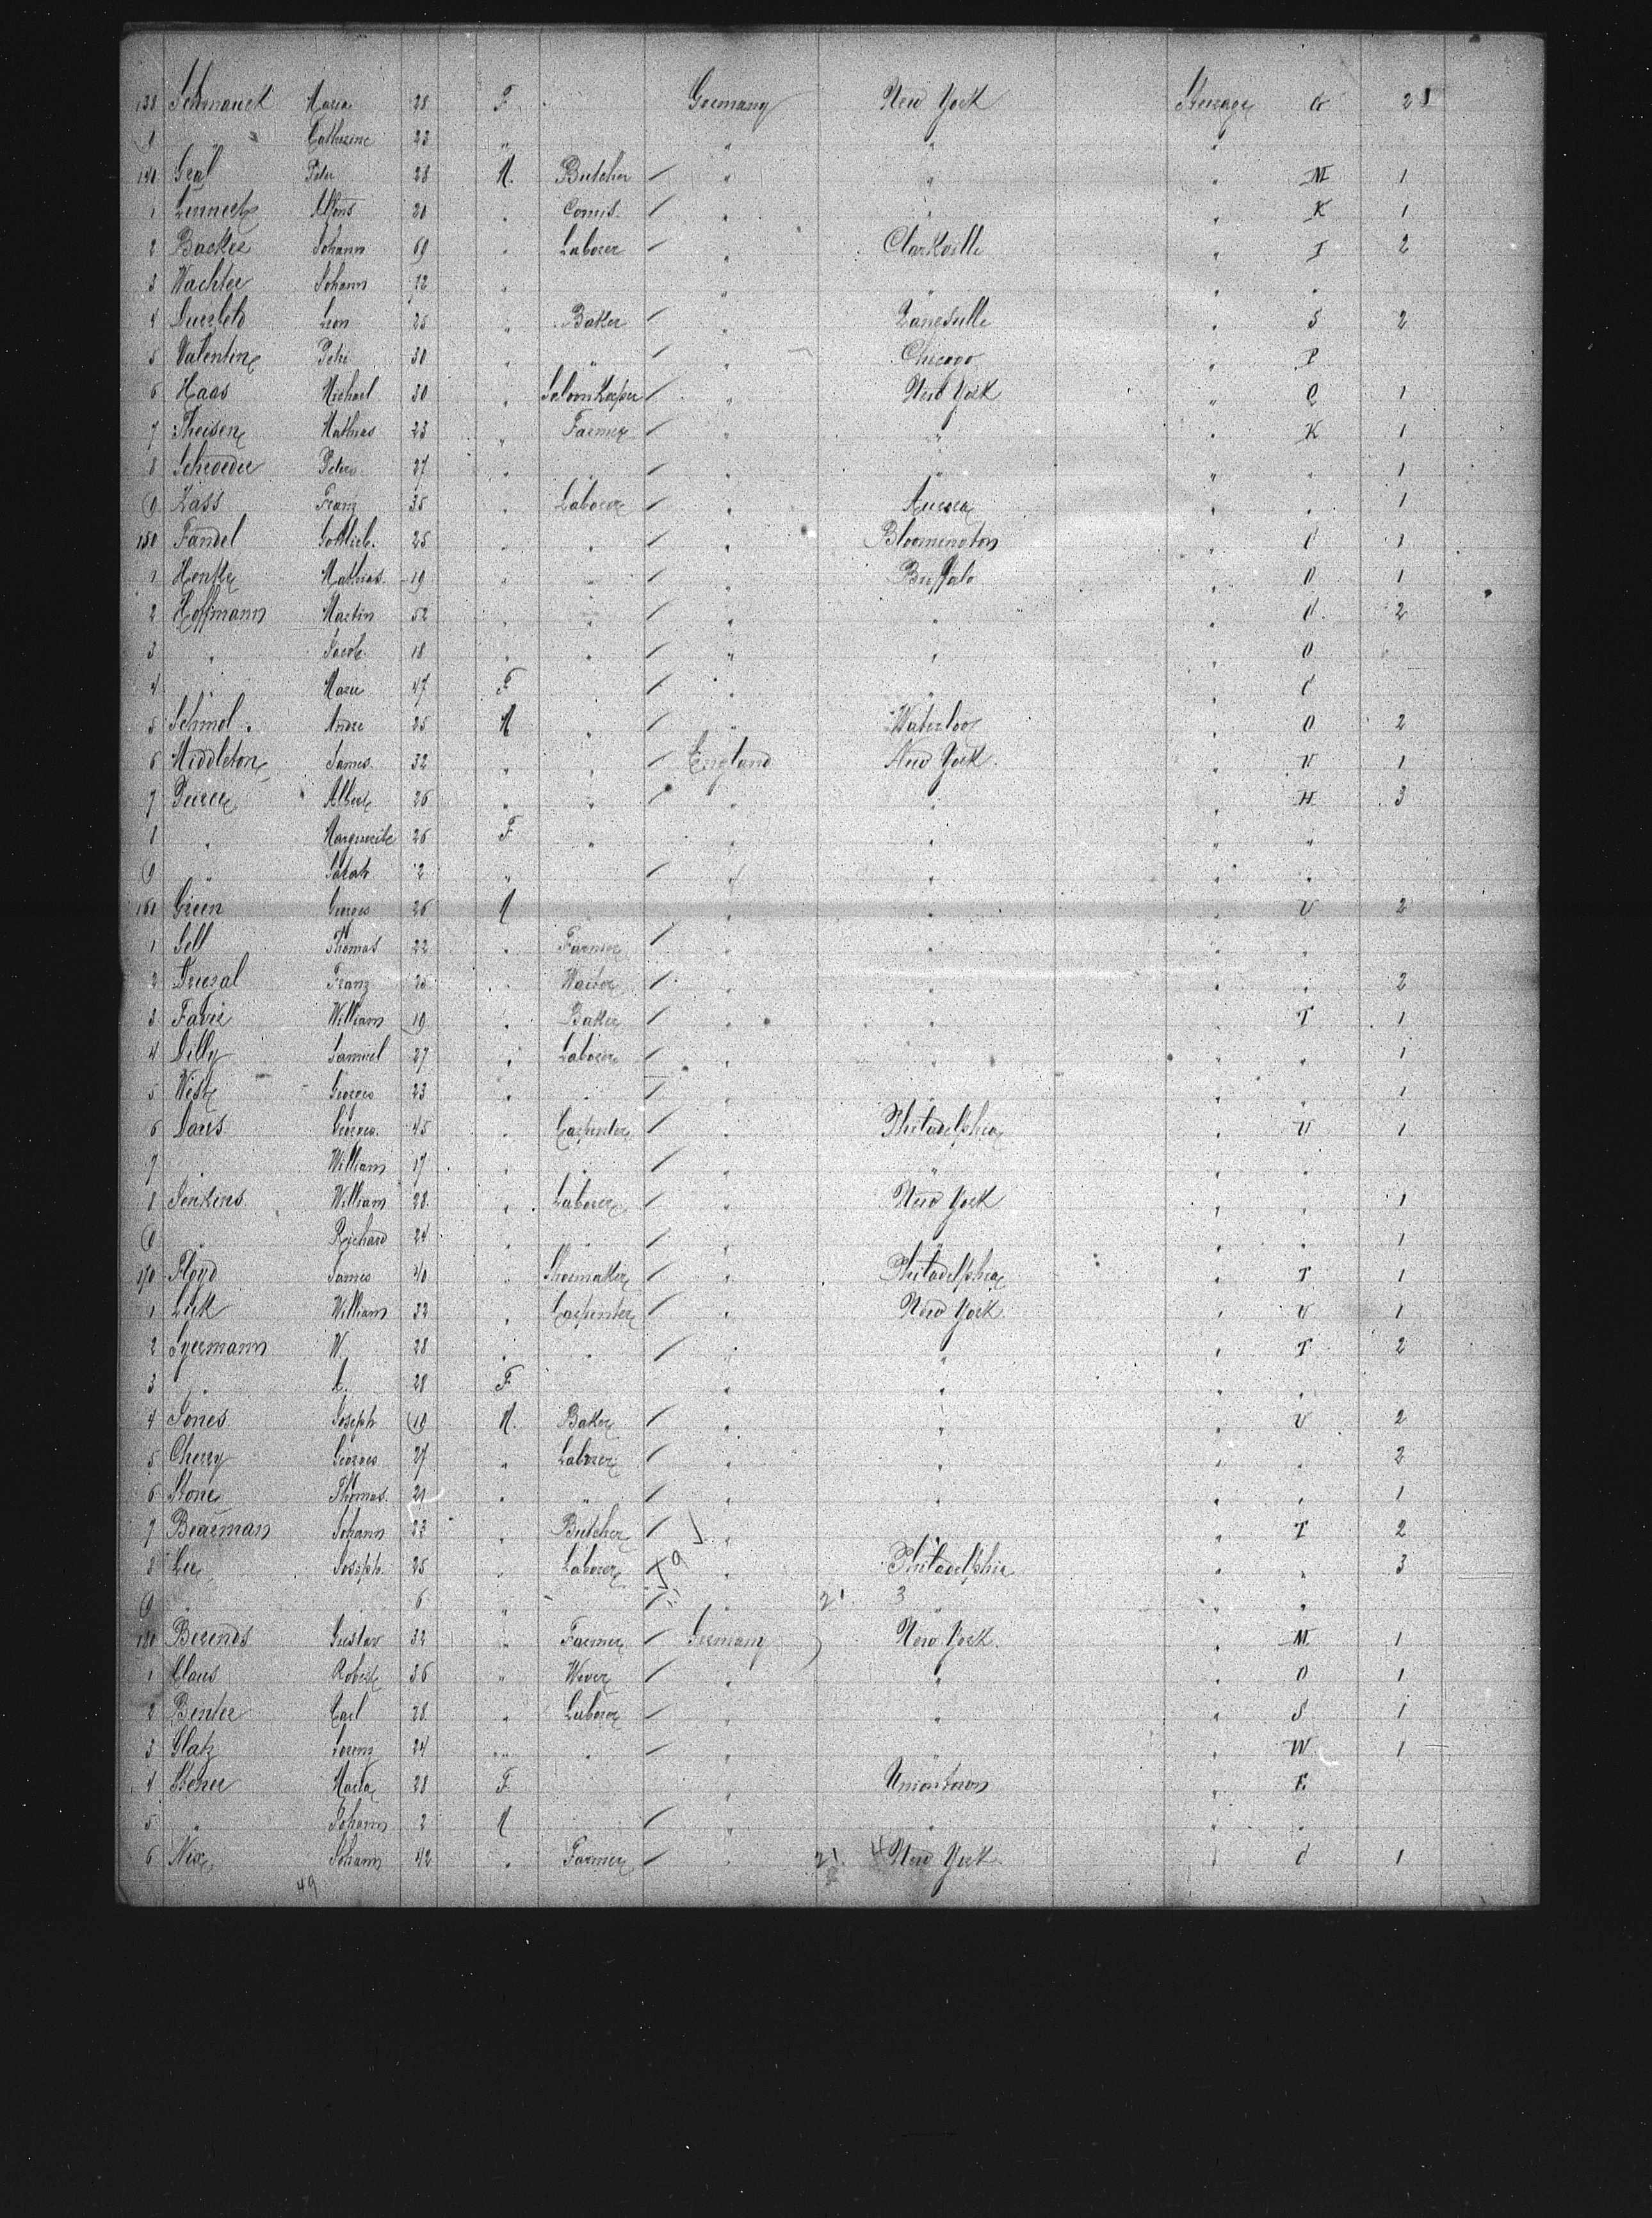 138 Schmauck Maria 28 F. Germany New York Steerage G 2
9 " Catherine 23 " " " "
140 Graf Peter 28 M. Butcher / " " " M 1
1 Alfons 20 " Comis. / " " " K 1
2 Backer Johann 69 " Laborer / " Clarkville " I 2
3 Wachter Johann 12 " " " " "
4 Leon 25 " Baker / " Zanesville " S 2
5 Valentin Peter 30 " " / " Chicago " P
6 Haas Michael 30 " Salomkeeper / " New York " Q 1
7 Theisen Mathias 23 " Farmer / " " " K 1
8 Schroeder Peter 27 " " / " " " " 1
9 Kass Franz 35 " Laborer / " " " 1
150 Fandel Gottlieb. 25 " " / " Bloomington " O 1
1 Mathias 19 " " / " Buffalo " O 1
2 Hoffmann Martin 52 " " / " " " O 2
3 " Jacob 18 " " / " " " O
4 " Marie 47 F / " " " O
5 Schmol Andre 25 M " / " Waterloo " O 2
6 Middleton James 32 " " / England New York. " U 1
7 Albert 26 " " " " " H 3
8 " Marguerite 26 F. " " " " "
9 " Sarah 2 " / " " " "
161 Green Georges 26 M " " " U 2
1 Sell Thomas 22 " Farmer / " " " "
2 Franz 25 " Waiter / " " " " 2
3 Favre William 19 " Baker / " " " T 1
4 Dilly Samuel 27 " Laborer / " " " " 1
5 West Georges 23 " " / " " " " 1
6 Davis Georges. 45 " Carpenter / " Philadelphia " U 1
7 " William 17 " " / " " " "
8 Jenkens William 28 " Laborer / " New York " " 1
9 " Richard 24 " " / " " " " 1
170 Floyd James 40 " Shoemaker / " Philadelphia " T 1
1 Luk William 32 " Carpenter / " New York " U 1
2 Syermann W. 28 " " / " " " T 2
3 " 28 F. " " " "
4 Jones Joseph 19 M. Baker / " " " U 2
5 Cherry Georges 27 " Laborer / " " " " 2
6 Stone Thomas. 21 " " / " " " " 1
7 Bearman Johann 22 " Butcher / " " " T 2
8 Lee Joseph 25 " Laborer " Philadelphia " " 3
9 " 6 " " 21 3 " "
180 Berends Gustav 32 " Farmer / Germany New York. " M 1
1 Claus Robert 36 " Wever / " " " O 1
2 Benter Carl 28 " Laborer / " " " S 1
3 Glatz Lorenz 24 " " / " " " W 1
4 Maria 28 F. " Uniontown " F.
5 " Johann 2 M / " " " "
6 Nix Johann 42 " Farmer / " 21 4 New York " O 1
49